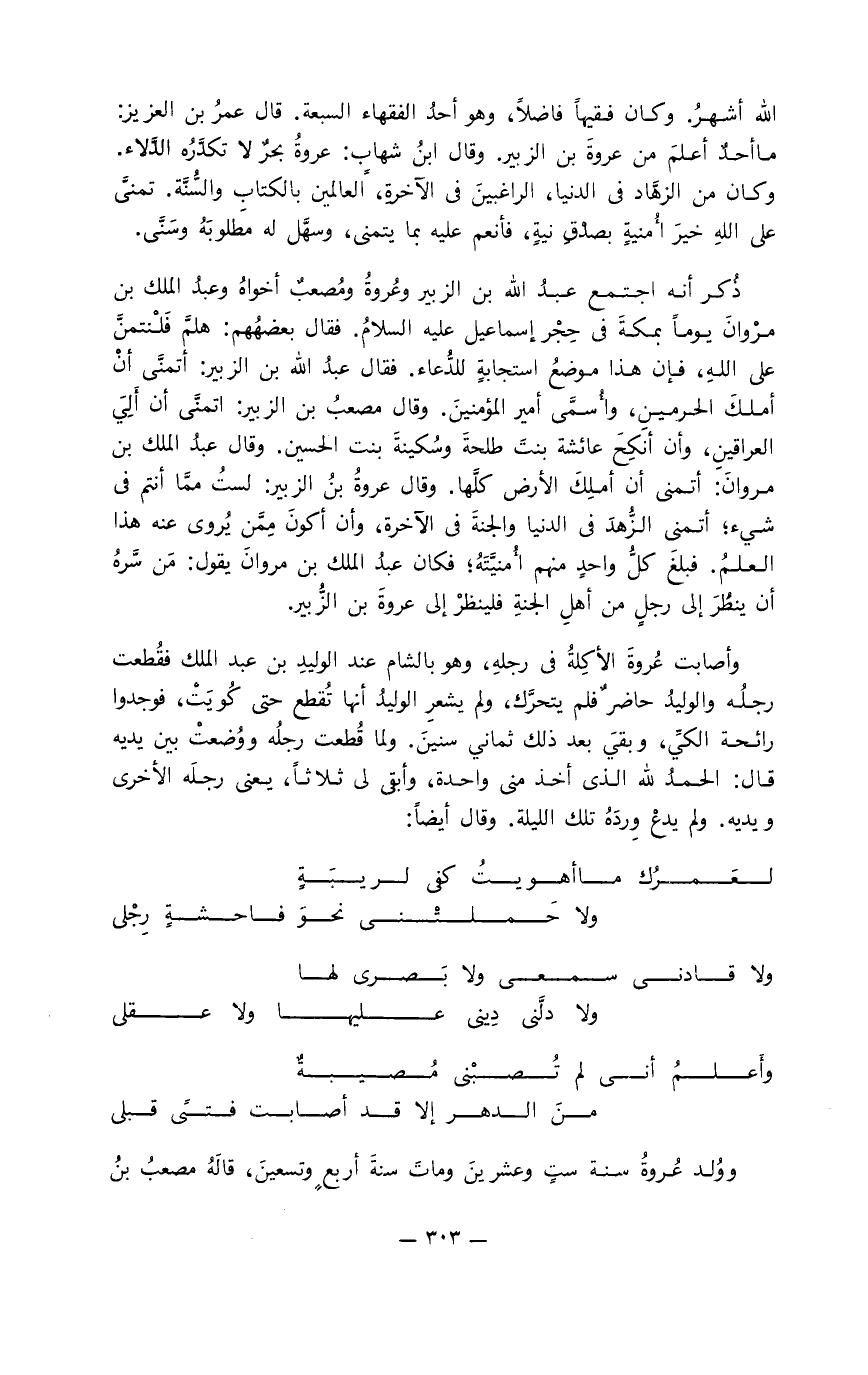 الله أشهرُ. وكان فقيهاً فاضلاً، وهو أحدُ الفقهاء السبعة. قال عمرُ بن العزيز:
ماأحدٌ أعلمَ من عروةَ بن الزبير. وقال ابنُ شهابٍ: عروةُ بحرٌ لا تكدَّرُه الدَّلاء.
وكان من الزهَّاد فى الدنيا، الراغبينَ فى الآخرةِ، العالمين بالكتابِ والسُّنَّة. تمنىَّ
على اللهِ خيرَ أُمنيةٍ بصدْقِ نيةٍ، فأنعم عليه بما يتمنى، وسهَّل له مطلوبَهُ وسَنَّى.
ذُكر أنه اجتمع عبدُ الله بن الزبير وعُروةُ ومُصعبٌ أخواهُ وعبدُ الملك بن
مرْوانَ يوماً بمكةَ فى حِجْر إسماعيل عليه السلامُ. فقال بعضهُهم: هلمَّ فَلْنتمنَّ
على اللهِ، فإن هذا موضعُ استجابةٍ للدُّعاء. فقال عبدُ الله بن الزبير: أتمنَّى أنْ
أملكَ الحرمينِ، وأُسمَّى أمير المؤمنينَ. وقال مصعبُ بن الزبير: اتمنَّى أن أَلِيَ
العراقينِ، وأن أنكِحَ عائشة بنتَ طلحةَ وسُكينةَ بنت الحسين. وقال عبدُ الملك بن
مروانَ: أتمنى أن أملِكَ الأرض كلَّها. وقال عروةُ بنُ الزبير: لستُ ممَّا أنتم فى
شيء؛ أتمنى الزُّهدَ فى الدنيا والجنةَ فى الآخرة، وأن أكونَ مِمَّن يُروى عنه هذا
العلمُ. فبلغَ كلُّ واحدٍ منهم أُمنيَّتَهُ؛ فكان عبدُ الملك بن مروانَ يقول: مَن سَّرهُ
أن ينظُرَ إلى رجلٍ من أهلِ الجنةِ فلينظرْ إلى عروةَ بن الزُّبير.
وأصابت عُروةَ الأكِلةُ فى رجلهِ، وهو بالشام عند الوليدِ بن عبد الملك فقُطعت
رجلُه والوليدُ حاضرٌ فلم يتحرَّك، ولم يشعرِ الوليدُ أنها تُقطع حتى كُويَتْ، فوجدوا
رائحة الكيِّ، وبقيَ بعد ذلك ثماني سنينَ. ولما قُطعت رجلُه ووُضعتْ بين يديه
قال: الحمدُ لله الذى أخذ منى واحدة، وأبقى لى ثلاثاً، يعنى رجلَه الأخرى
ويديه. ولم يدعْ وِردَهُ تلك الليلة. وقال أيضاً:
لعَمرُك ماأهويتُ كفى لريبَةٍ
ولا حَملتْنى نحوَ فاحشةٍ رِجْلى
ولا قادنى سمعى ولا بَصرى لها
ولا دلَّنى دِينى عليها ولا عقلى
وأَعلمُ أنى لم تُصبْنى مُصيبةٌ
منَ الدهر إلا قد أصابت فتىَّ قبلى
ووُلد عُروةُ سنة ستٍ وعشرينَ وماتَ سنةَ أربعٍ وتسعينَ، قالَهُ مصعبُ بنُ
— ٣٠٣ —